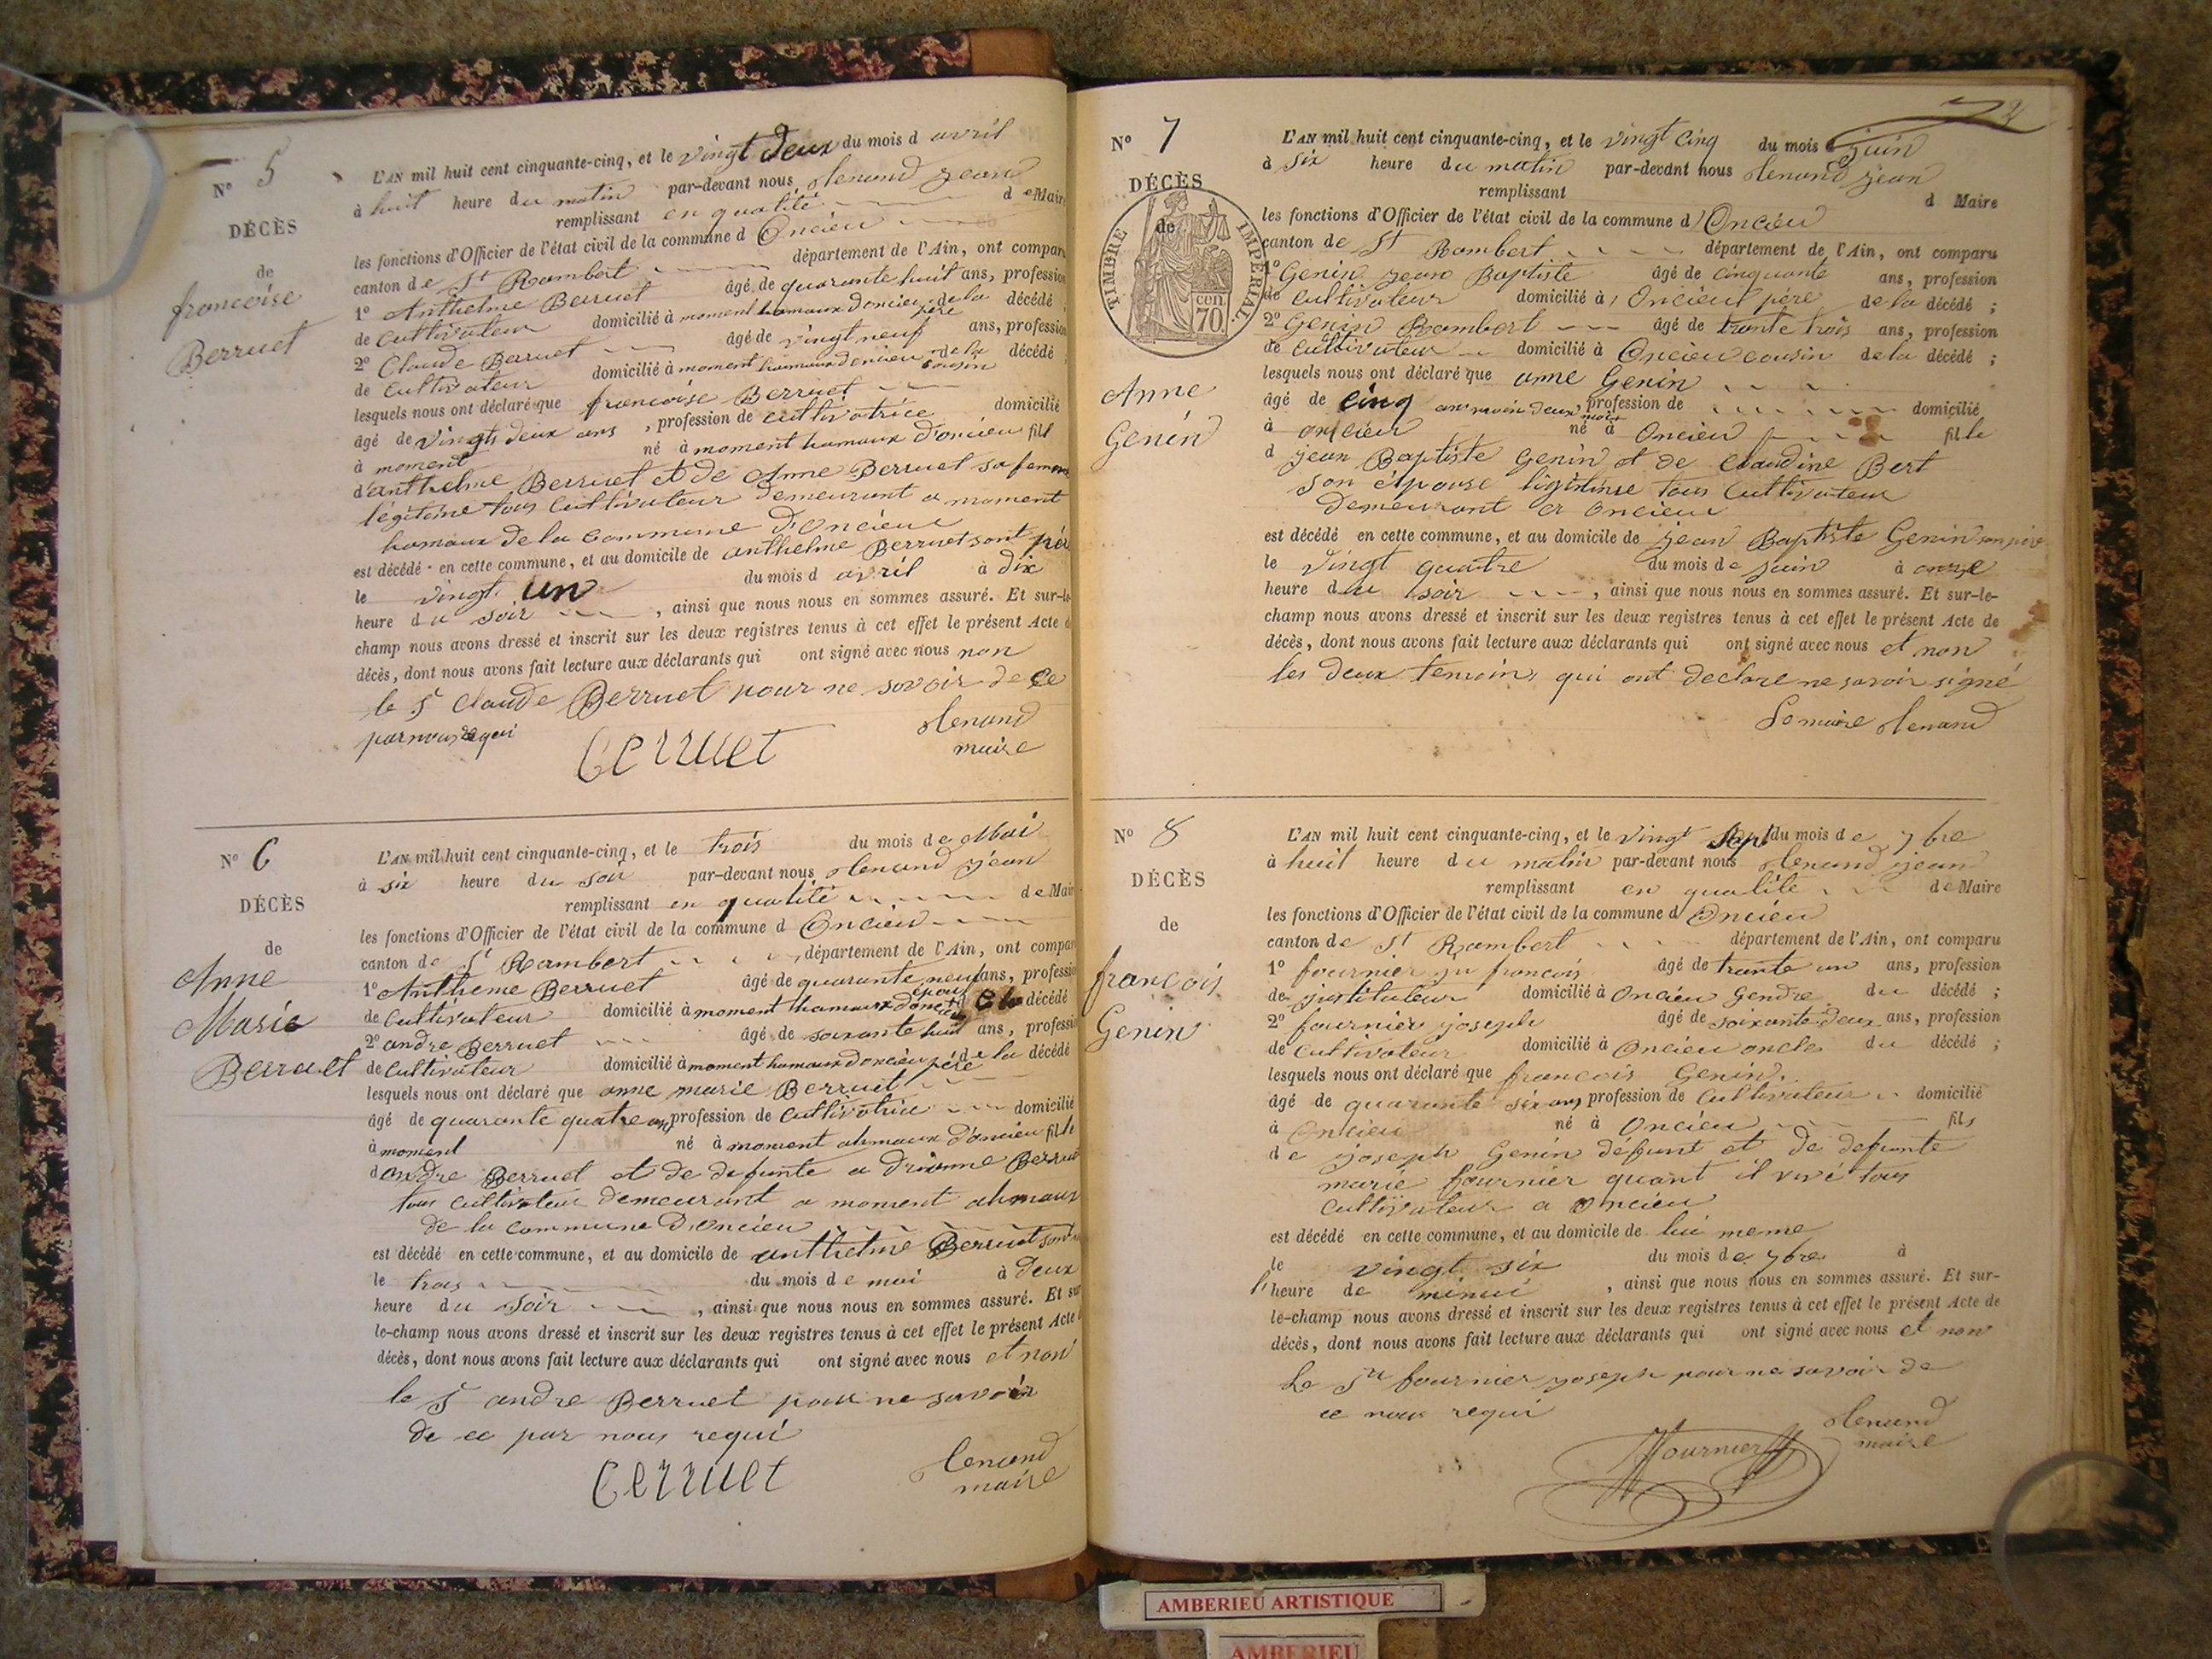 N° 5
DÉCÈS
de
francoise
Berruet
L'AN mil huit cent cinquante-cinq, et le vingt deux du mois d avril
à huit heure du matin par-devant nous Jean
remplissant en qualité de Maire
les fonctions d'Officier de l'état civil de la commune d Oncieu
canton de St Rambert département de l'Ain, ont comparu
1° Anthelme Berruet âgé de quarante huit ans, profession
de cultivateur domicilié à moment hamaux doncieu père de la décédé
2° Claude Berruet âgé de vingt neuf ans, profession
de cultivateur domicilié à moment hamaux doncieu cousin de la décédé
lesquels nous ont déclaré que francoise Berruet
âgé de vingts deux ans, profession de cultivatrice domicilié
à moment né à moment hamaux d'oncieu fill
d'anthelme Berruet et de Anne Berruet sa femme
légitime tous cultivateur demeurant a moment
hamaux de la commune d'Oncieu
est décédé en cette commune, et au domicile de anthelme Berruet sont père
le vingt un du mois d avril à dix
heure du soir, ainsi que nous nous en sommes assuré. Et sur-le-
champ nous avons dressé et inscrit sur les deux registres tenus à cet effet le présent Acte d
décès, dont nous avons fait lecture aux déclarants qui ont signé avec nous non
le Sr Claude Berruet pour ne savoir de ce
par nous requi
Berruet
maire
N° 6
DÉCÈS
de
Anne
Marie
Berruet
L'AN mil huit cent cinquante-cinq, et le trois du mois de Mai
à six heure du soir par-devant nous jean
remplissant en qualité de Maire
les fonctions d'Officier de l'état civil de la commune d Oncieu
canton de St Rambert département de l'Ain, ont comparu
1° Antheme Berruet âgé de quarante neuf ans, profession
de cultivateur domicilié à moment hamaux doncieu époux de la décédé
2° andre Berruet âgé de soixante huit ans, profession
de cultivateur domicilié à moment hamaux doncieu père de la décédé
lesquels nous ont déclaré que anne marie Berruet
âgé de quarante quatre ans profession de cultivatrice domicilié
à moment né à moment ahmaux d'oncieu fille
d andre Berruet et de defunte a drianne Berruet
tous cultivateur demeurant a moment ahmaux
de la commune D'oncieu
est décédé en cette commune, et au domicile de anthelme Berruet
le trois du mois de mai à deux
heure du soir, ainsi que nous nous en sommes assuré. Et sur
le-champ nous avons dressé et inscrit sur les deux registres tenus à cet effet le présent Acte
décès, dont nous avons fait lecture aux déclarants qui ont signé avec nous et non
le Sr andre Berruet pour ne savoir
de ce par nous requi
Berruet
maire
N° 7
DÉCÈS
de
TIMBRE IMPERIAL
70 cen
Anne
Genin
L'AN mil huit cent cinquante-cinq, et le vingt cinq du mois juin
à six heure du matin par-devant nous jean
remplissant d Maire
les fonctions d'Officier de l'état civil de la commune d'Oncieu
canton de St Rambert département de l'Ain, ont comparu
1° Genin jean Baptiste âgé de cinquante ans, profession
de cultivateur domicilié à Oncieu père de la décédé ;
2° Genin Rambert âgé de trante trois ans, profession
de cultivateur domicilié à Oncieu cousin de la décédé ;
lesquels nous ont déclaré que anne Genin
âgé de cinq ans moin deux mois, profession de domicilié
à oncieu né à Oncieu fille
d jean Baptiste Genin et de Claudine Bert
son épouse légitime tous cultivateur
demeurant a oncieu
est décédé en cette commune, et au domicile de jean Baptiste Genin son père
le vingt quatre du mois de juin à onze
heure du soir, ainsi que nous nous en sommes assuré. Et sur-le-
champ nous avons dressé et inscrit sur les deux registres tenus à cet effet le présent Acte de
décès, dont nous avons fait lecture aux déclarants qui ont signé avec nous et non
les deux temoins qui ont declare ne savoir signé
Le maire
N° 8
DÉCÈS
de
francois
Genin
L'AN mil huit cent cinquante-cinq, et le vingt sept du mois de 7bre
à huit heure du matin par-devant nous jean
remplissant en qualité de Maire
les fonctions d'Officier de l'état civil de la commune d'Oncieu
canton de St Rambert département de l'Ain, ont comparu
1° fournier jn francois âgé de trante un ans, profession
de justituteur domicilié à Oncieu Gendre du décédé ;
2° fournier joseph âgé de soixante deux ans, profession
de cultivateur domicilié à Oncieu oncle du décédé ;
lesquels nous ont déclaré que francois Genin
âgé de quarante six ans profession de cultivateur domicilié
à Oncieu né à Oncieu fils
de joseph Genin défunt et de defunte
marie fournier quant il vivé tous
cultivateur a oncieu
est décédé en cette commune, et au domicile de lui meme
le vingt six du mois de 7bre à
l'heure de minui, ainsi que nous nous en sommes assuré. Et sur-
le-champ nous avons dressé et inscrit sur les deux registres tenus à cet effet le présent Acte de
décès, dont nous avons fait lecture aux déclarants qui ont signé avec nous et non
Le Sr fournier joseph pour ne savoir de
ce nous requi
maire
Fournier
AMBERIEU ARTISTIQUE
AMBERIEU